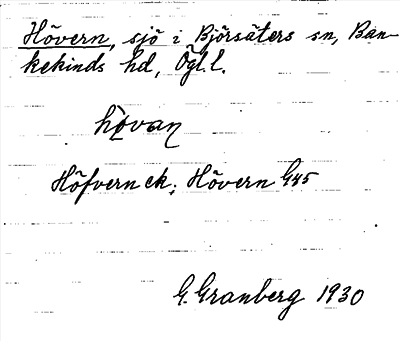 Hövern, sjö i Björsäters sn, Ban-
kekinds hd, Ögl. l.
hòvan
Höfvern ek; Hövern G45
G. Granberg 1930